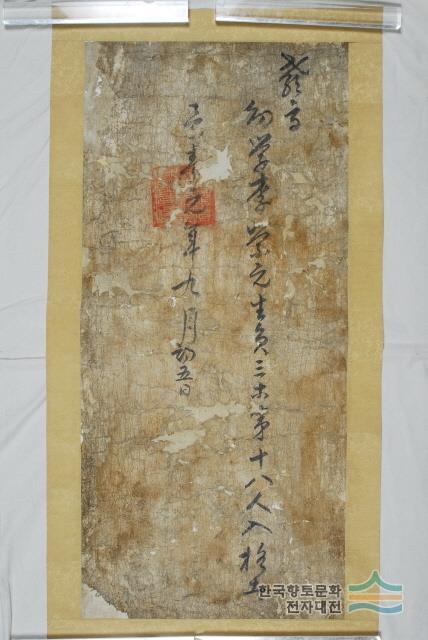 教旨
幼學李榮元生員三等第十八人入格者
景泰元年九月初五日
한국향토문화
전자대전